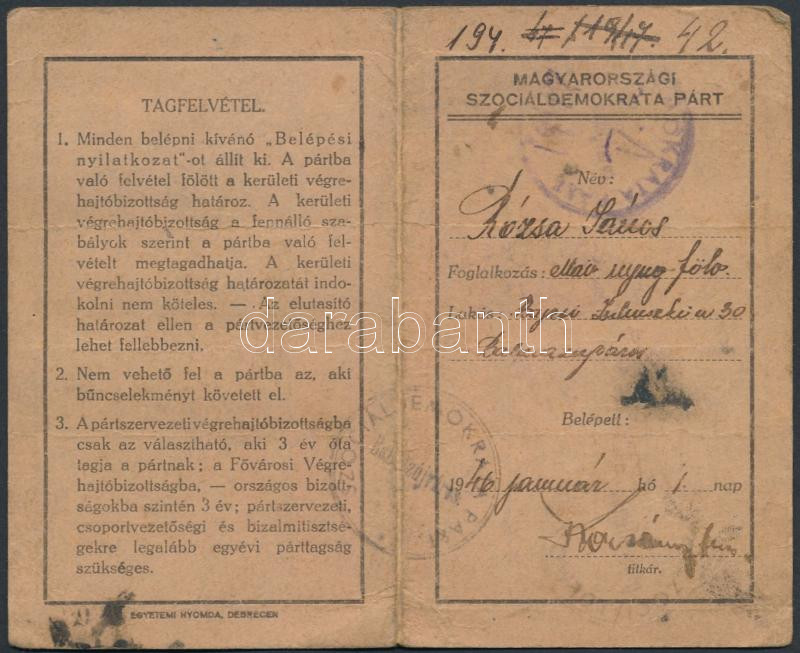 TAGFELVÉTEL.
1. Minden belépni kívánó „Belépési
nyilatkozat"-ot állít ki. A pártba
való felvétel fölött a kerületi végre-
hajtóbizottság határoz. A kerületi
végrehajtóbizottság a fennálló sza-
bályok szerint a pártba való fel-
vételt megtagadhatja. A kerületi
végrehajtóbizottság határozatát indo-
kolni nem köteles. — Az elutasító
határozat ellen a pártvezetőséghez
lehet fellebbezni.
2. Nem vehető fel a pártba az, aki
bűncselekményt követett el.
3. A pártszervezeti végrehajtóbizottságba
csak az választható, aki 3 év óta
tagja a pártnak; a Fővárosi Végre-
hajtóbizottságba, — országos bizott-
ságokba szintén 3 év; pártszervezeti,
csoportvezetőségi és bizalmitisztsé-
gekre legalább egyévi párttagság
szükséges.
EGYETEMI NYOMDA, DEBRECEN
194. 42.
MAGYARORSZÁGI
SZOCIÁLDEMOKRATA PÁRT
Név:
Rózsa János
Foglalkozás:
Lakás: 30
Belépett:
1946 január hó 1. nap
titkár.
darabanth